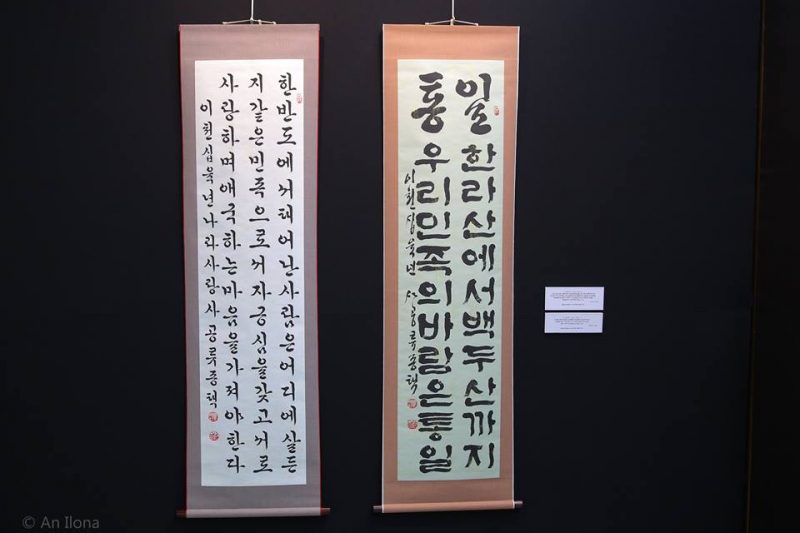 한반도에서태어난사람은어디에살든
지같은민족으로서자긍심을갖고서로
사랑하며애국하는마음을가져야한다
이천십육년나라사랑사공류종택
통일
한라산에서백두산까지
우리민족의바람은통일
이천십육년 사공류종택
© An Ilona